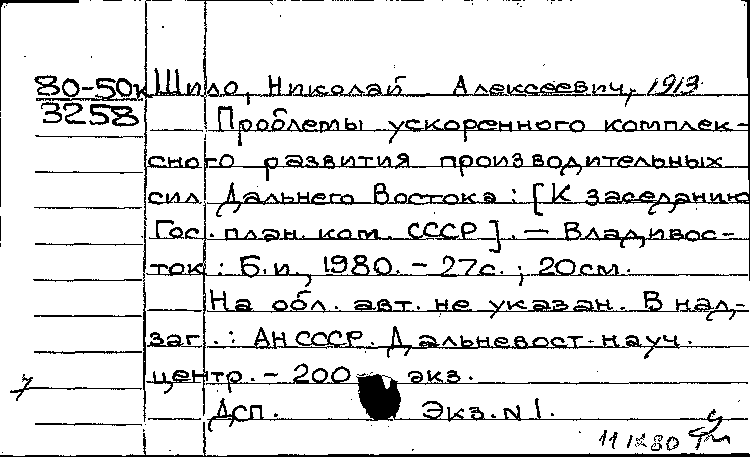 80-50к Шило, Николай Алексеевич, 1913
3258 Проблемы ускоренного комплек-
сного развития производительных
сил Дальнего Востока : [К заседанию
Гос. план. ком. СССР]. — Владивос-
ток : Б.и., 1980. - 27с. ; 20см.
На обл. авт. не указан. В над-
заг. : АН СССР. Дальневост. науч.
центр. - 200 экз.
ДСП. Экз. N 1.